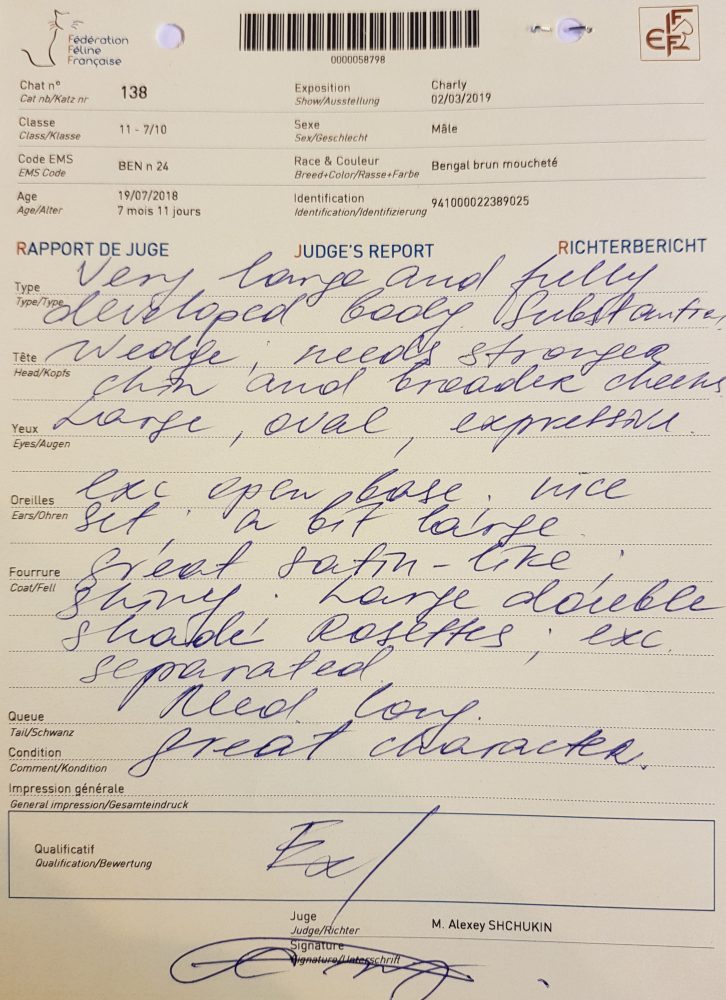 Fédération
Féline
Française
0000058798
FIFe
Chat n° 138 Exposition Charly
Cat nb/Katz nr Show/Ausstellung 02/03/2019
Classe 11 - 7/10 Sexe Mâle
Class/Klasse Sex/Geschlecht
Code EMS BEN n 24 Race & Couleur Bengal brun moucheté
EMS Code Breed+Color/Rasse+Farbe
Age 19/07/2018 Identification 941000022389025
Age/Alter 7 mois 11 jours Identification/Identifizierung
RAPPORT DE JUGE JUDGE'S REPORT RICHTERBERICHT
Type Very large and fully
Type/Type developed body. Substantial
Tête Wedge, needs stronger
Head/Kopfs chin and broader cheeks
Yeux Large, oval, expressive.
Eyes/Augen
Oreilles exc open base. nice
Ears/Ohren set; a bit large.
Fourrure great satin-like;
Coat/Fell shiny. Large double
shade Rosettes; exc.
separated.
Queue long.
Tail/Schwanz
Condition great character.
Comment/Kondition
Impression générale
General impression/Gesamteindruck
Qualificatif Ex/
Qualification/Bewertung
Juge M. Alexey SHCHUKIN
Judge/Richter
Signature
Signature/Unterschrift